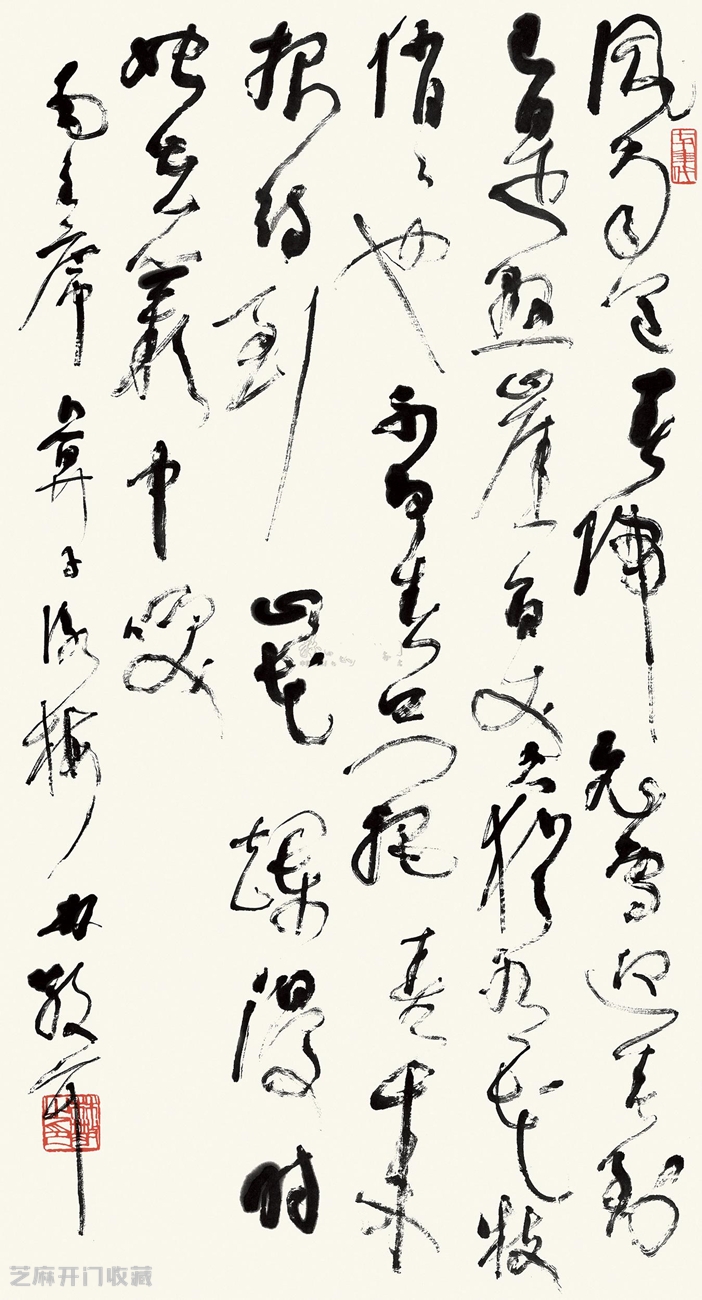 风雨送春归飞雪迎春到
已是悬崖百丈冰犹有花枝
俏々也不争春只把春来
报待到山花烂漫时
她在丛中笑
主席卜算子咏梅 林散耳
芝麻开门收藏